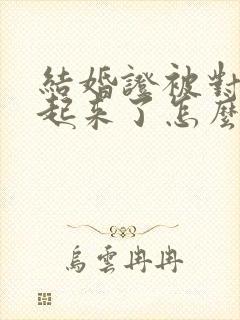 結婚證被對
起來了怎麼
烏雲冉冉